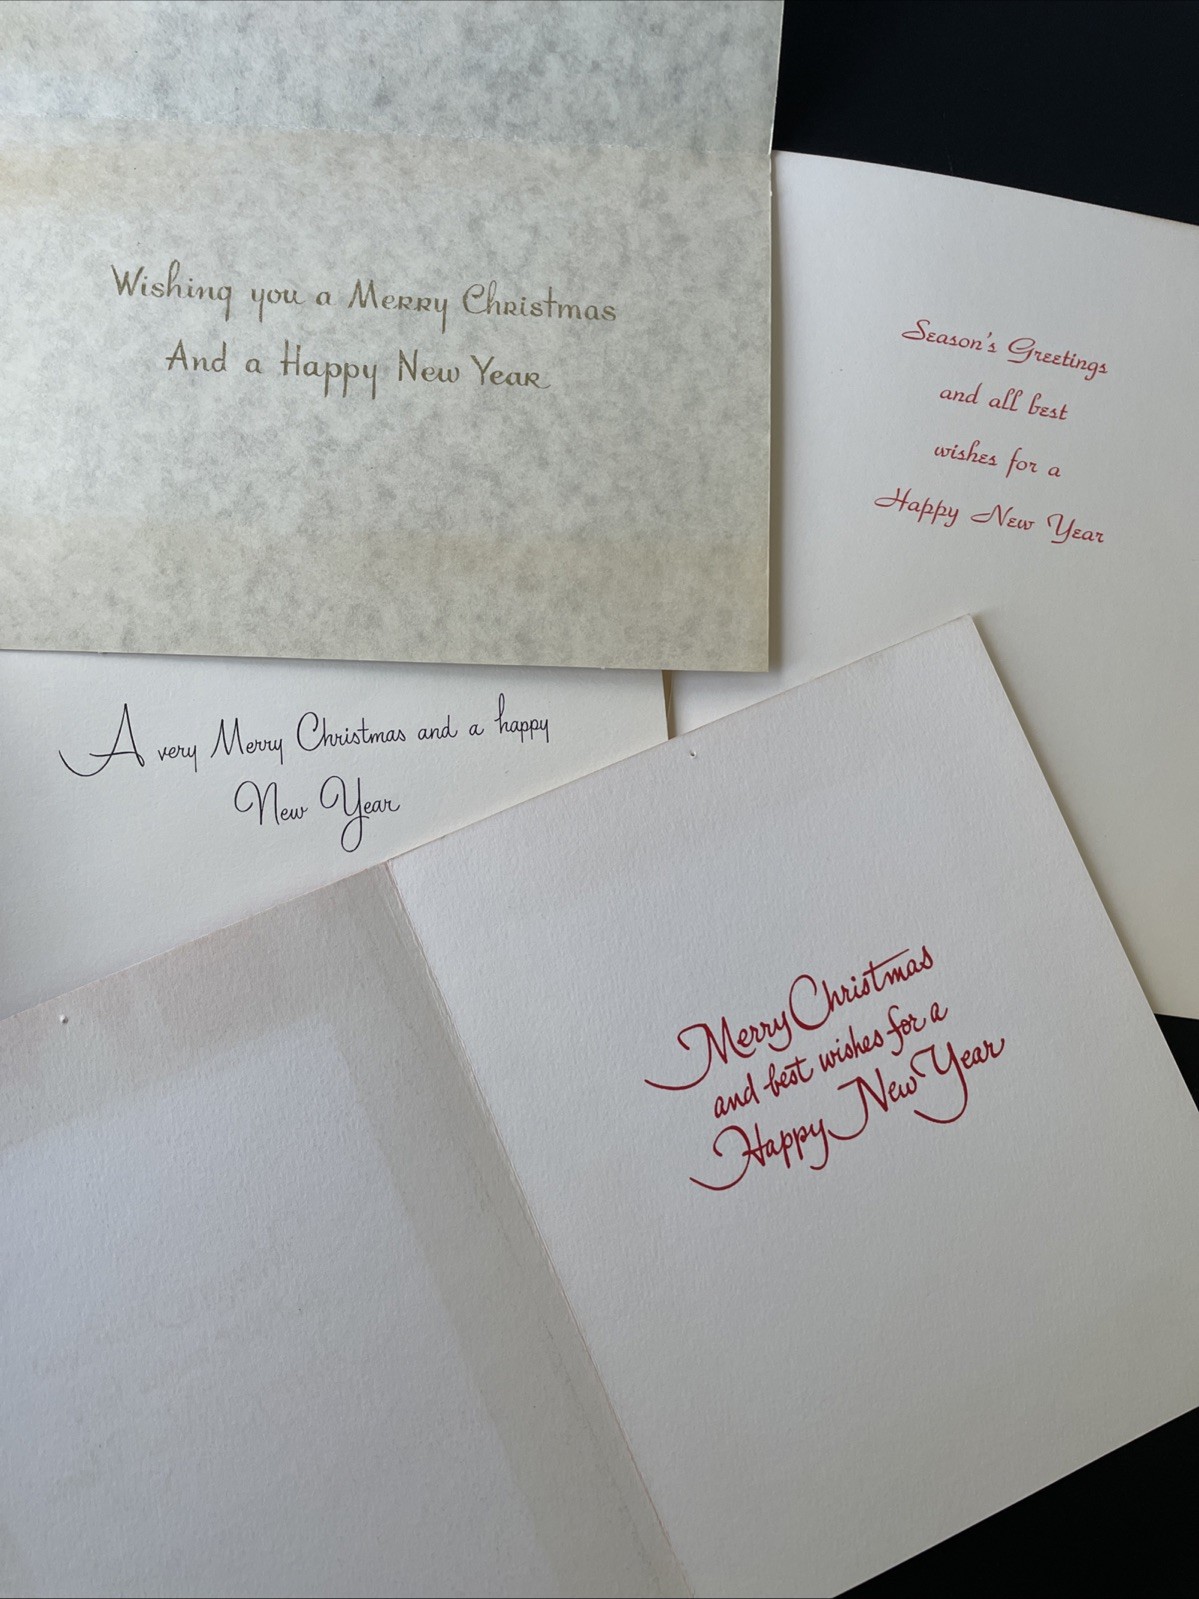 Wishing you a Merry Christmas
And a Happy New Year
Season's Greetings
and all best
wishes for a
Happy New Year
A very Merry Christmas and a happy
New Year
Merry Christmas
and best wishes for a
Happy New Year